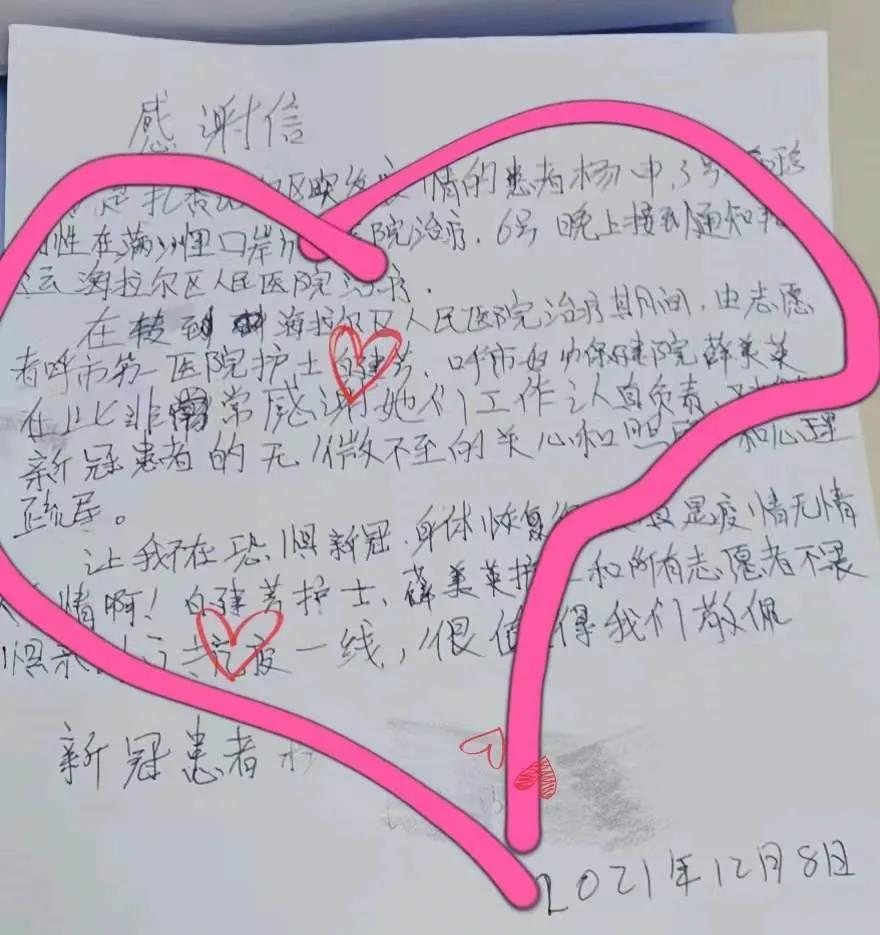 感谢信
是扎赉诺尔区突发疫情的患者杨 中,3号
性在满洲里口岸 医院治疗.6号晚上接到通知
运海拉尔区人民医院治疗.
在转到 海拉尔区人民医院治疗其月间,由志愿
者呼市第一医院护士白建芳、呼市妇幼保健院薛美英
在此非常感谢她们工作认真负责,
新冠患者的无微不至的关心和照 和心理
疏导。
让我不在恐惧新冠.身体恢复 是疫情无情
情啊!白建芳护士、薛美英护 和所有志愿者不畏
惧 抗疫一线,很值得我们敬佩
新冠患者
2021年12月8日